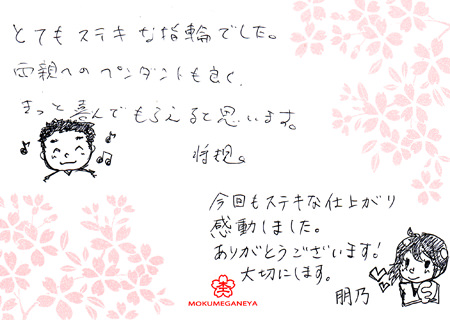 とてもステキな指輪でした。
両親へのペンダントも良く、
きっと喜んでもらえると思います。
今回もステキな仕上がり
感動しました。
ありがとうございます!
大切にします。
朋乃
MOKUMEGANEYA